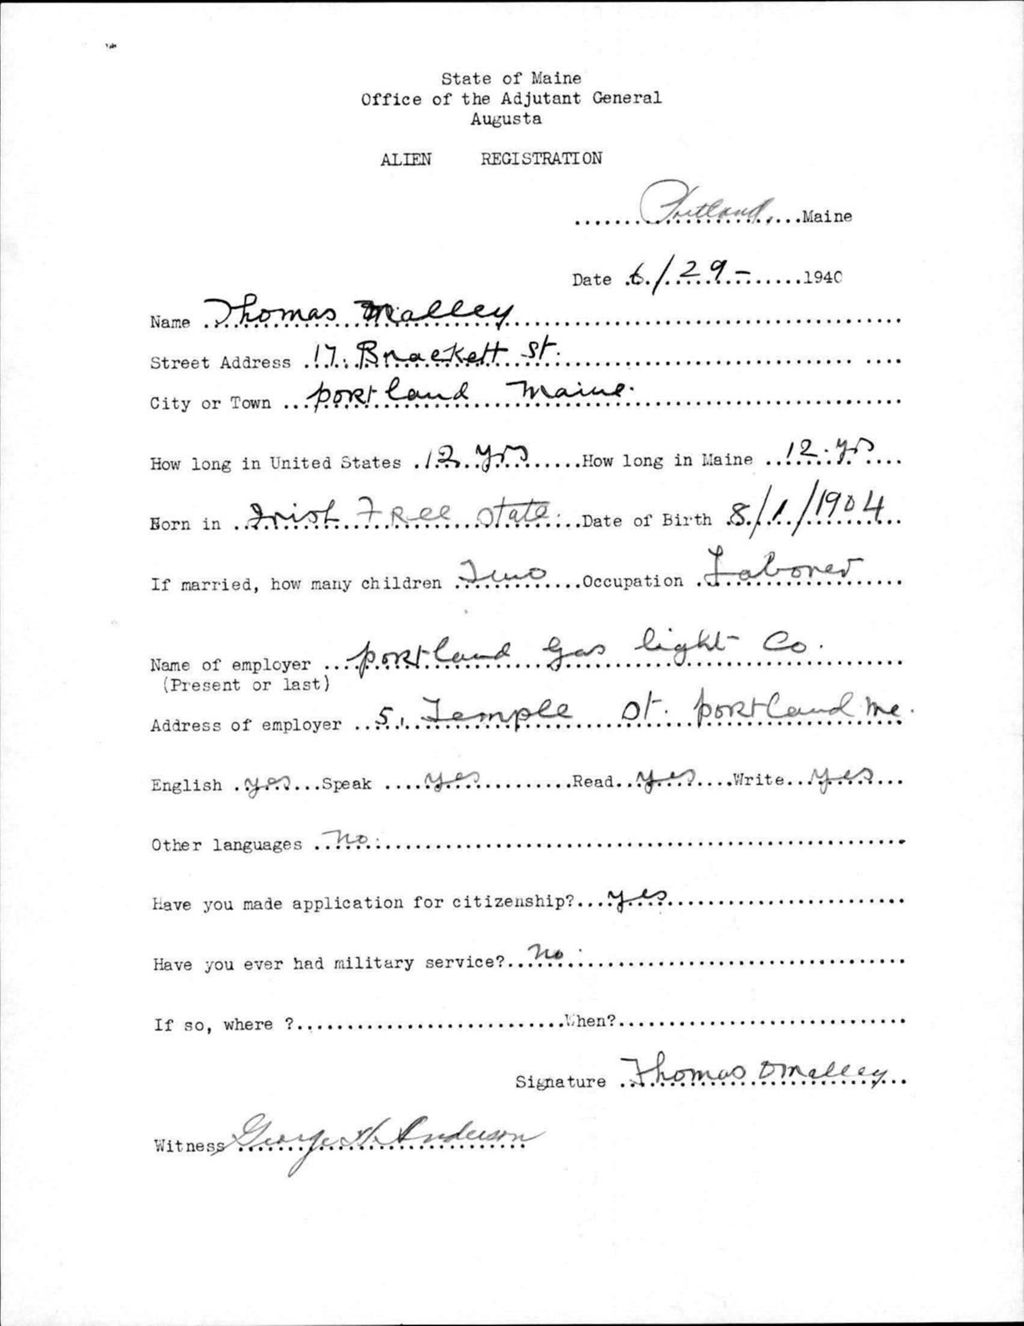 State of Maine
Office of the Adjutant General
Augusta
ALIEN REGISTRATION
.......Portland,....Maine
Date .6./.29.-.......1940
Name ..Thomas Malley
Street Address .17. Brackett St.
City or Town ...portland Maine.
How long in United States .12 yrs......How long in Maine ..12. yrs....
Born in ..Irish Free State...Date of Birth .8/1/1904..
If married, how many children .Two....Occupation .Laborer
Name of employer ...portland Gas light Co.
(Present or last)
Address of employer ..5, Temple St. portland Me.
English .yes...Speak ....yes.........Read..yes....Write..yes...
Other languages ..no.
Have you made application for citizenship?...yes
Have you ever had military service?..no.
If so, where ?...........................When?...........................
Signature ..Thomas OMalley..
Witness George H. Anderson